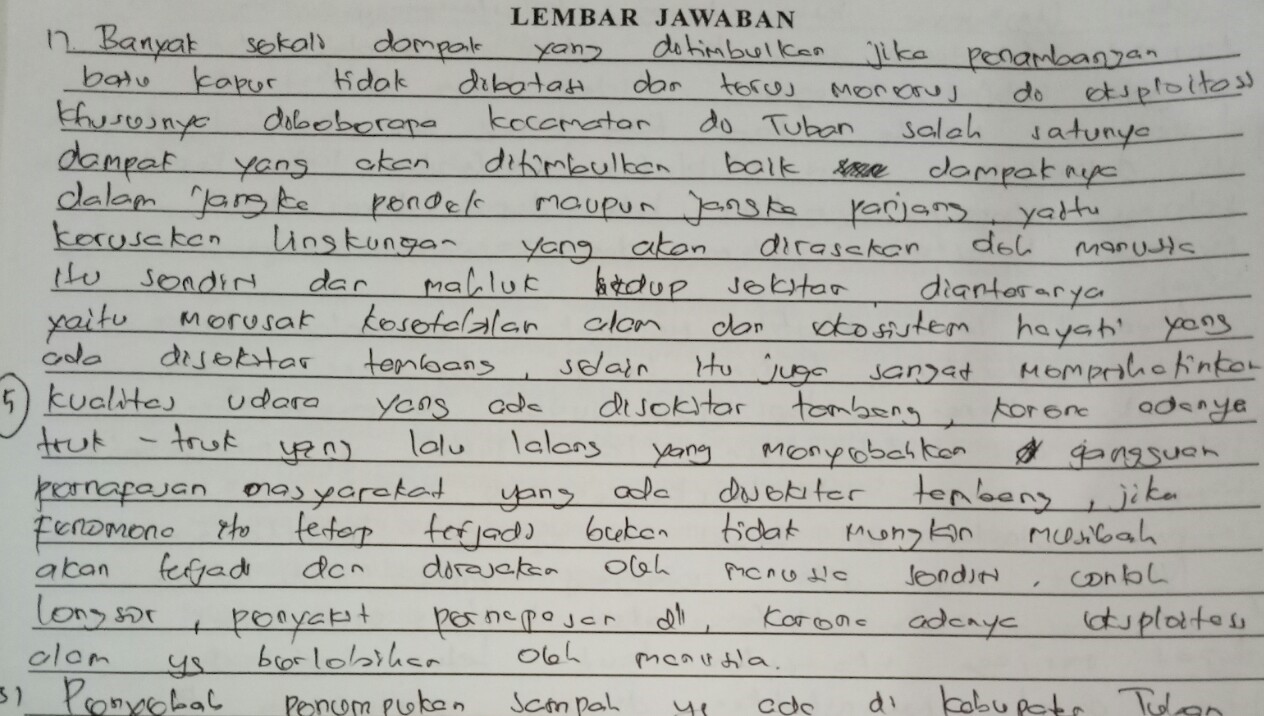 LEMBAR JAWABAN
1). Banyak sekali dampak yang ditimbulkan jika penambangan
batu kapur tidak dibatasi dan terus menerus di eksploitasi
khususnya dibeberapa kecamatan di Tuban salah satunya
dampak yang akan ditimbulkan baik dampaknya
dalam jangka pendek maupun jangka panjang yaitu
kerusakan lingkungan yang akan dirasakan oleh manusia
itu sendiri dan mahluk hidup sekitar, diantaranya
yaitu merusak kesetabilan alam dan ekosistem hayati yang
ada disekitar tambang, selain itu juga sangat memprihatinkan
5 kualitas udara yang ada disekitar tambang, karena adanya
truk - truk yang lalu lalang yang menyebabkan gangguan
pernapasan masyarakat yang ada disekitar tambang, jika
fenomena itu tetap terjadi bukan tidak mungkin musibah
akan terjadi dan dirasakan oleh manusia sendiri, contoh
longsor, penyakit pernapasan dll, karena adanya eksploitasi
alam yg berlebihan oleh manusia.
3) Penyebab penumpukan sampah yg ada di kabupaten Tuban